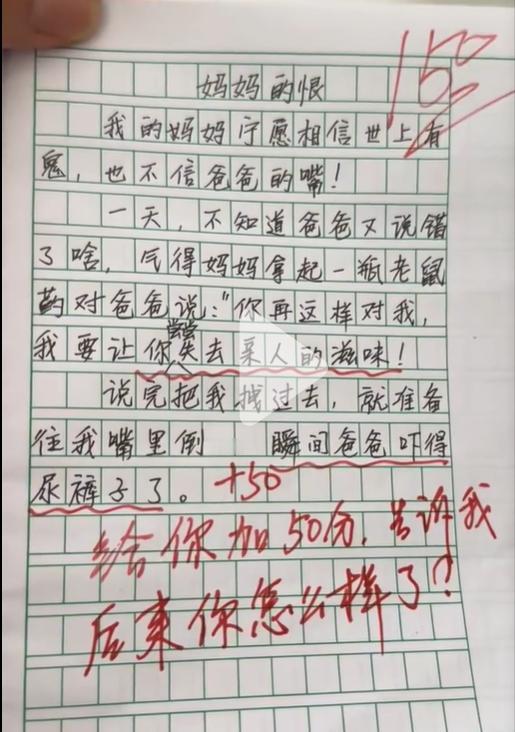 150
妈妈的恨
我的妈妈宁愿相信世上有
鬼，也不信爸爸的嘴！
一天，不知道爸爸又说错
了啥，气得妈妈拿起一瓶老鼠
药对爸爸说："你再这样对我，
我要让你尝尝失去亲人的滋味！
说完把我拽过去，就准备
往我嘴里倒 瞬间爸爸吓得
尿裤子了。 +50
给你加50分，告诉我
后来你怎么样了？